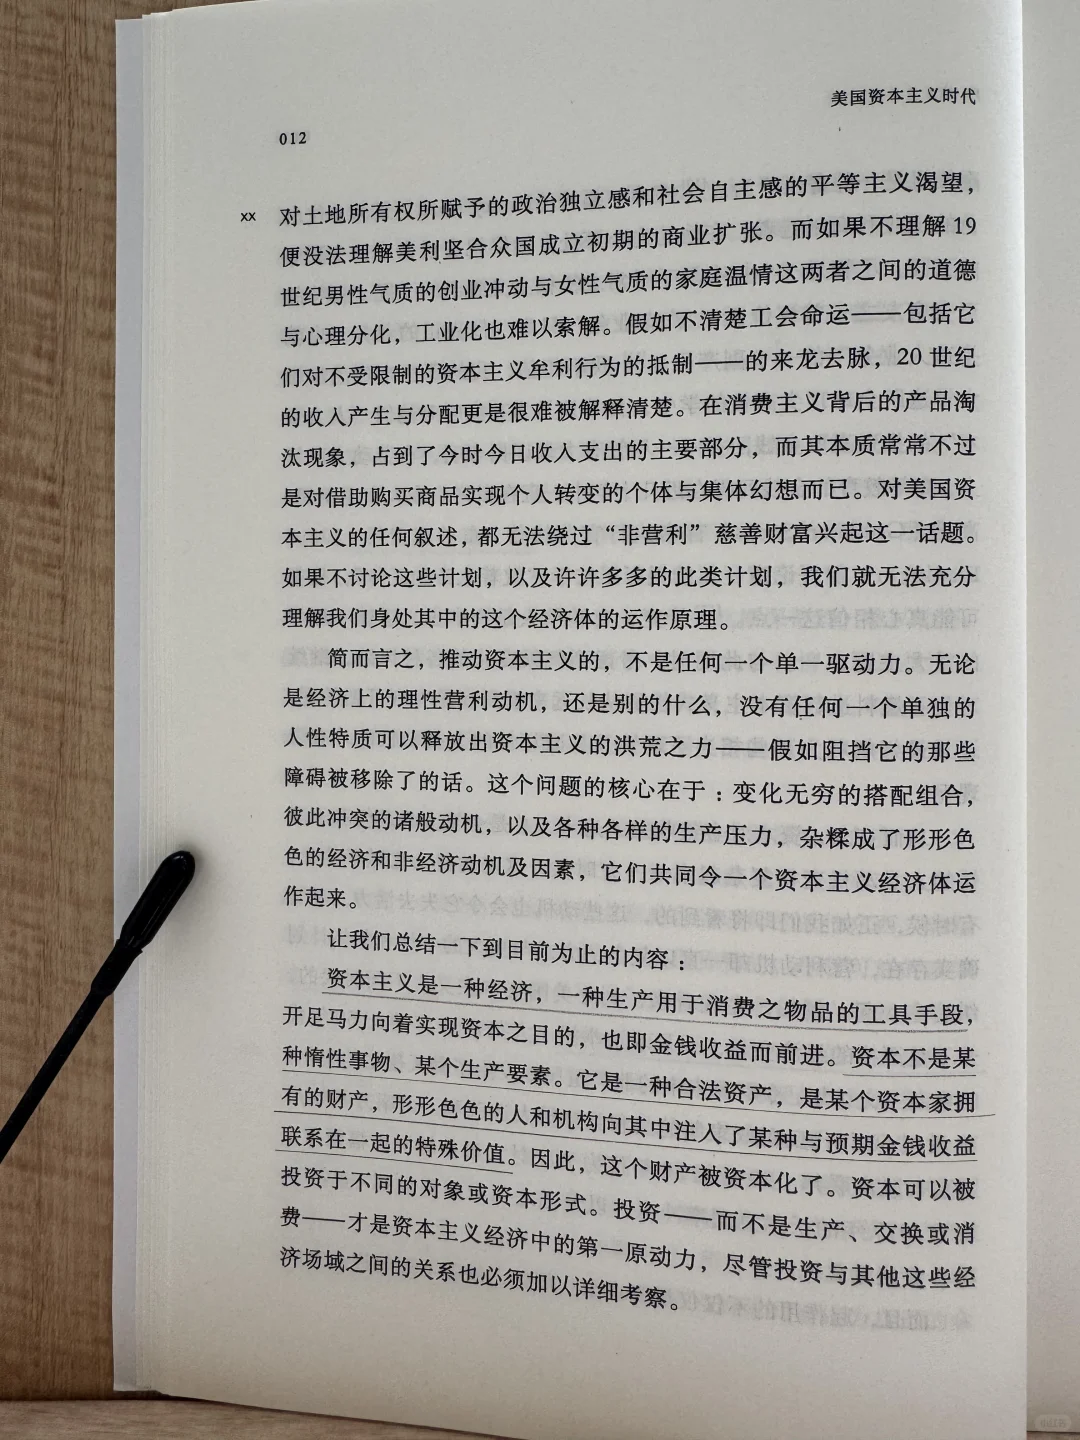 美国资本主义时代
012
xx
对土地所有权所赋予的政治独立感和社会自主感的平等主义渴望，
便没法理解美利坚合众国成立初期的商业扩张。而如果不理解 19
世纪男性气质的创业冲动与女性气质的家庭温情这两者之间的道德
与心理分化，工业化也难以索解。假如不清楚工会命运——包括它
们对不受限制的资本主义牟利行为的抵制——的来龙去脉，20 世纪
的收入产生与分配更是很难被解释清楚。在消费主义背后的产品淘
汰现象，占到了今时今日收入支出的主要部分，而其本质常常不过
是对借助购买商品实现个人转变的个体与集体幻想而已。对美国资
本主义的任何叙述，都无法绕过“非营利”慈善财富兴起这一话题。
如果不讨论这些计划，以及许许多多的此类计划，我们就无法充分
理解我们身处其中的这个经济体的运作原理。
简而言之，推动资本主义的，不是任何一个单一驱动力。无论
是经济上的理性营利动机，还是别的什么，没有任何一个单独的
人性特质可以释放出资本主义的洪荒之力——假如阻挡它的那些
障碍被移除了的话。这个问题的核心在于：变化无穷的搭配组合，
彼此冲突的诸般动机，以及各种各样的生产压力，杂糅成了形形色
色的经济和非经济动机及因素，它们共同令一个资本主义经济体运
作起来。
让我们总结一下到目前为止的内容：
资本主义是一种经济，一种生产用于消费之物品的工具手段，
开足马力向着实现资本之目的，也即金钱收益而前进。资本不是某
种惰性事物、某个生产要素。它是一种合法资产，是某个资本家拥
有的财产，形形色色的人和机构向其中注入了某种与预期金钱收益
联系在一起的特殊价值。因此，这个财产被资本化了。资本可以被
投资于不同的对象或资本形式。投资——而不是生产、交换或消
费——才是资本主义经济中的第一原动力，尽管投资与其他这些经
济场域之间的关系也必须加以详细考察。